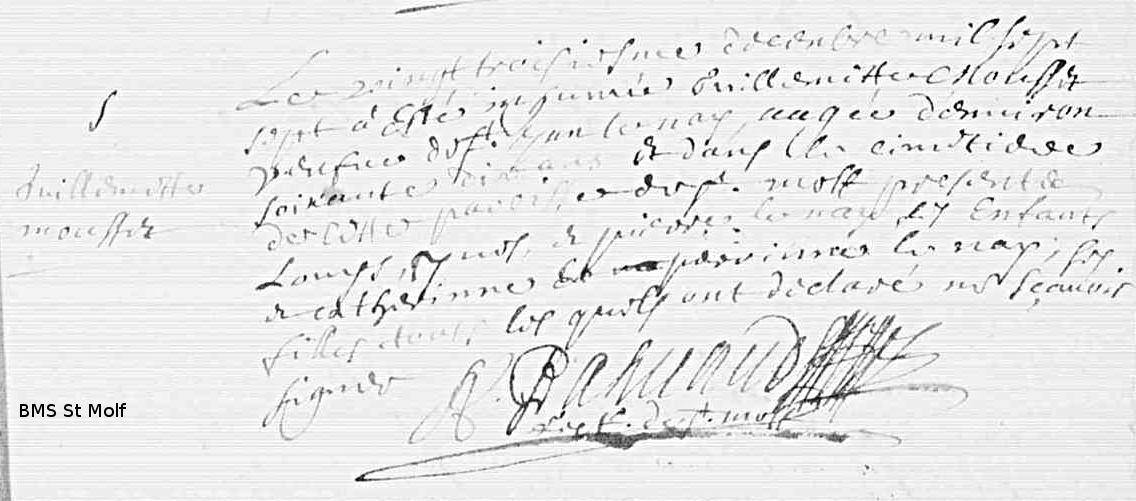 S
Guillemette
moussit
Le vingt troisiesme decembre mil sept
sept a esté inhumée Guillemitte Moussit
veufue def. Yuon le nay aagée d'enuiron
soixante dix ans et dans le cimitiere
de cette paroisse de st. molf presents
Louys, et pierre le nay enfants
et catherinne et perrinne le nay, ses
filles lesquels ont declaré ne sçauoir
signer
rect. de st. molf
BMS St Molf